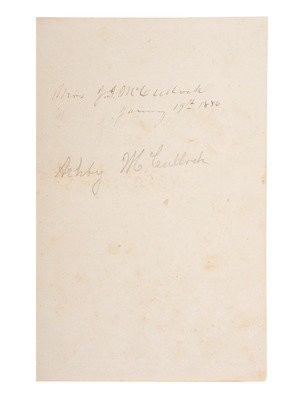 Mrs J. A. McCulloch
January 19th 1886
Ashby McCulloch